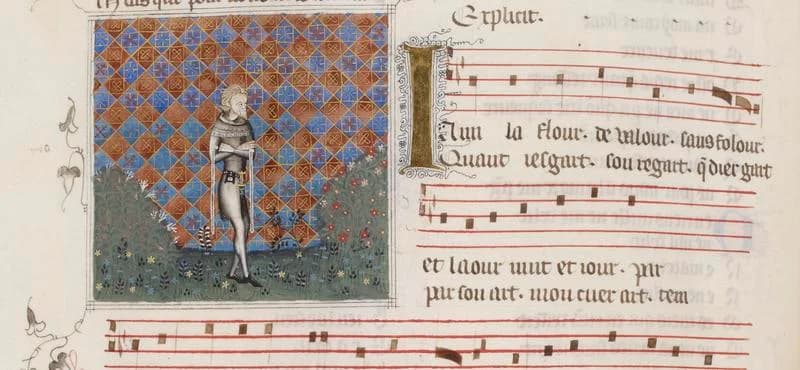 Explicit.
I Aim la flour. de valour. sans folour.
Quant iesgart. son regart. q̃ dier gart
et laour nuit et iour. par
par son art. mon cuer art. tem